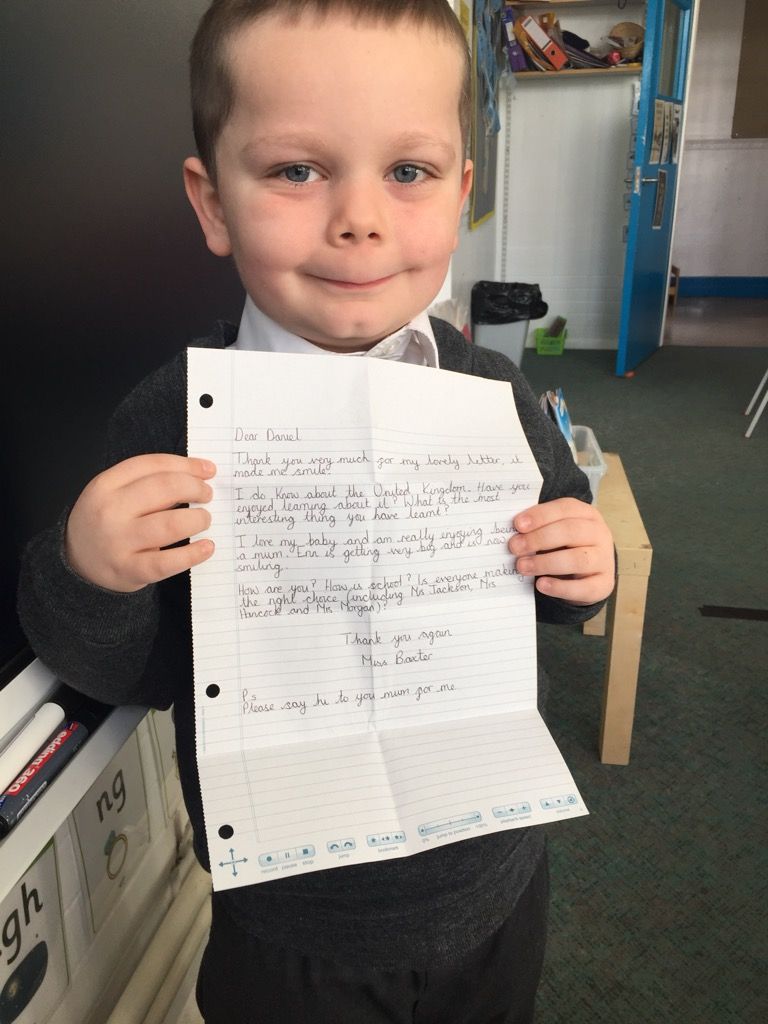 Dear Daniel
Thank you very much for my lovely letter, it
made me smile.
I do know about the United Kingdom. Have you
enjoyed learning about it? What is the most
interesting thing you have learnt?
I love my baby and am really enjoying being
a mum. Erin is getting very big and is now
smiling.
How are you? How is school? Is everyone making
the right choice (including Mrs Jackson, Mrs
Hancock and Mrs Morgan)?
Thank you again
Miss Baxter
Ps
Please say hi to you mum for me
record pause stop
jump
bookmark
0% jump to position 100%
playback speed
volume
edding 360
ng
igh